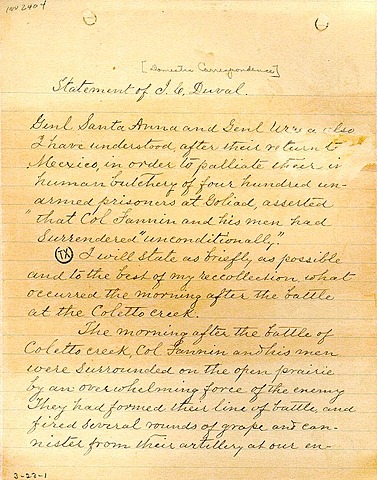 [Domestic Correspondence]
Statement of J. C. Duval.
Genl Santa Anna and Genl Urrea also
I have understood, after their return to
Mexico, in order to palliate their in
human butchery of four hundred un-
armed prisoners at Goliad, asserted
"that Col Fannin and his men had
Surrendered "unconditionally."
TX I will state as briefly as possible
and to the best of my recollection, what
occurred the morning after the battle
at the Coletto creek.
The morning after the battle of
Coletto creek, Col Fannin and his men
were surrounded on the open prairie
by an overwhelming force of the enemy
They had formed their line of battle, and
fired several rounds of grape and can-
nister from their artillery at our en-
3-23-1